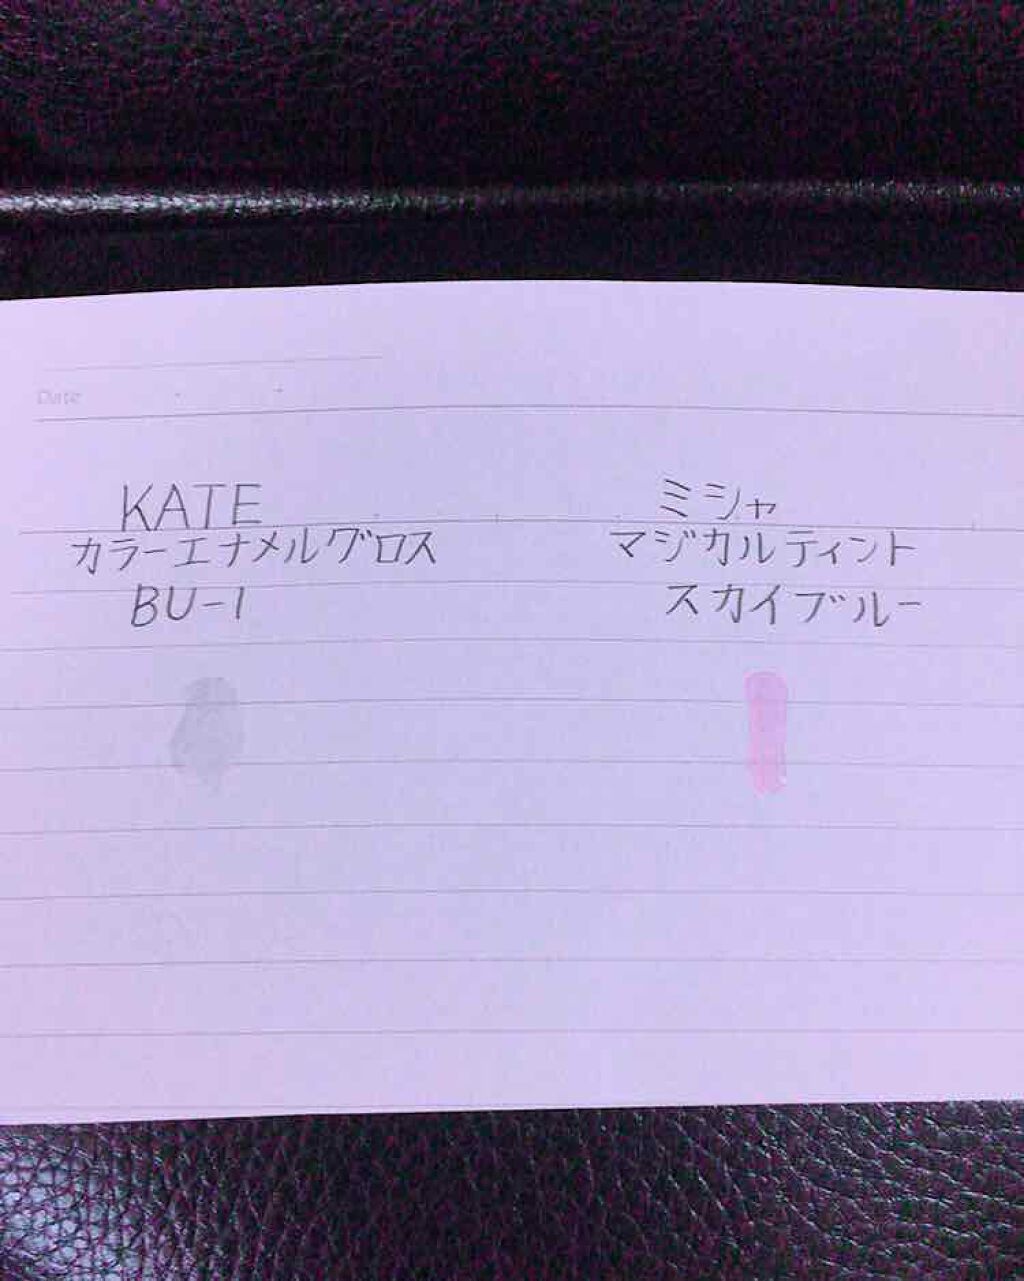 Date
KATE
カラーエナメルグロス
BU-1
ミシャ
マジカルティント
スカイブルー